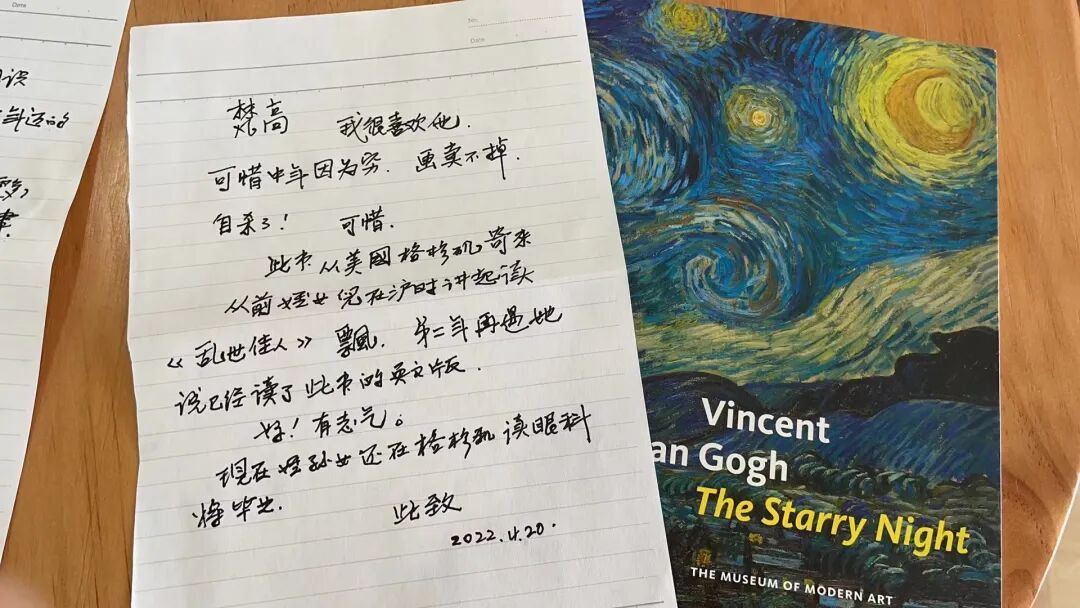 识
年迈的
No.
Date
梵高 我很喜欢他.
可惜中年因为穷.画卖不掉.
自杀了! 可惜.
此书从美國格林矶寄来
从前姪女倪在沪时讲起读
《乱世佳人》飄.第二年再遇她
说已经读了此书的英文版.
好!有志气。
现在姪孙女还在格林矶读眼科
将毕业.
此致
2022.4.20.
Vincent
an Gogh
The Starry Night
THE MUSEUM OF MODERN ART